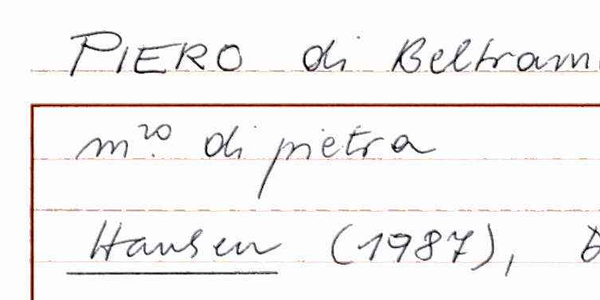 PIERO di Beltram
m.ro di pietra
Hansen (1987),